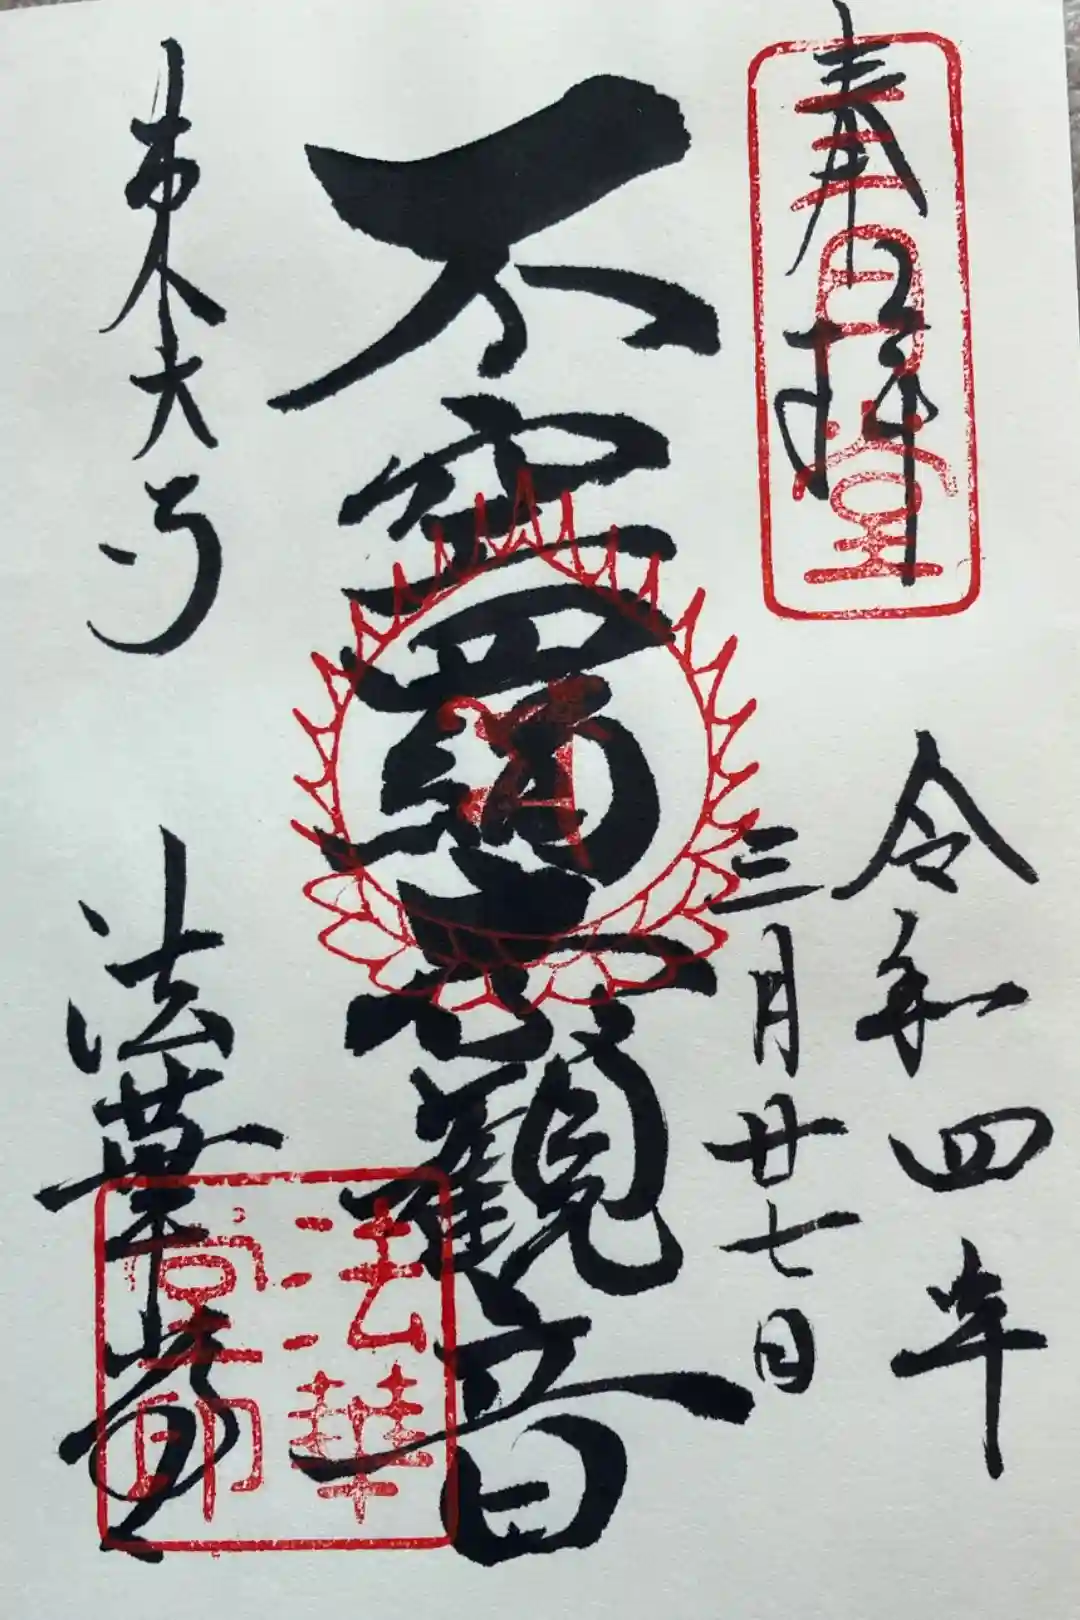 奉拝
三月堂
令和四年
三月廿七日
不空羂索観音
東大寺
法華堂
法華
堂印